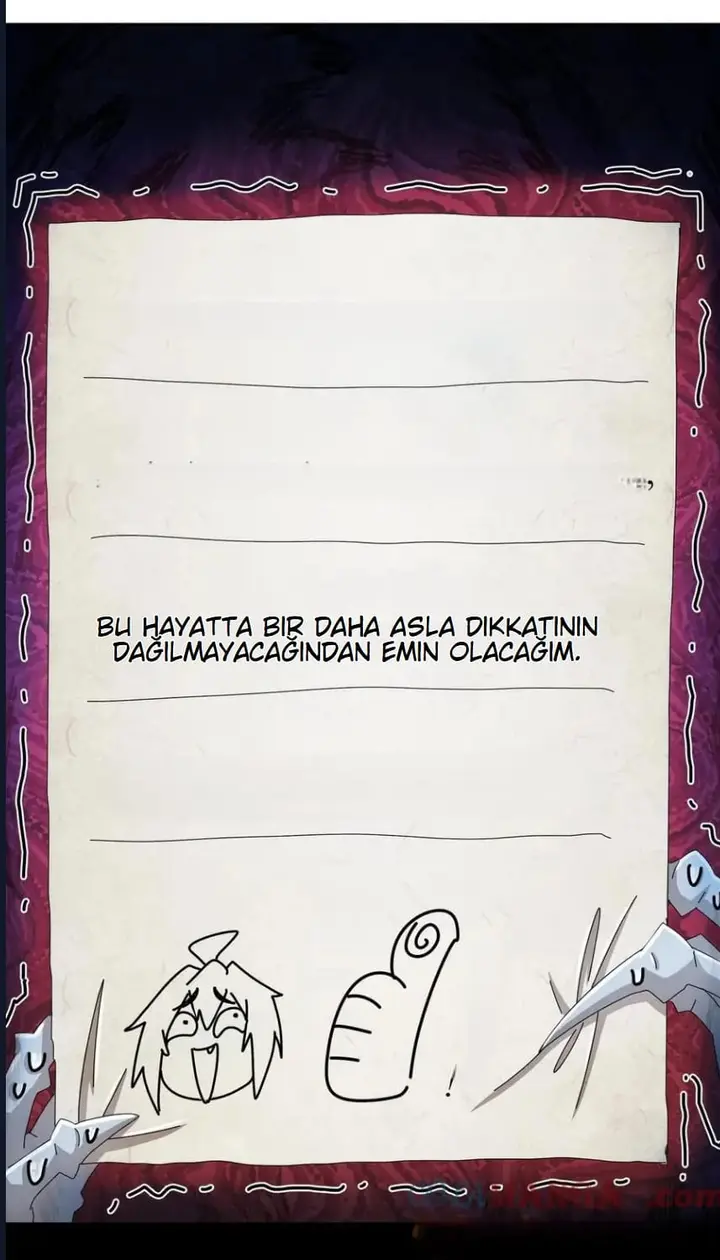 BU HAYATTA BIR DAHA ASLA DIKKATININ
DAĞILMAYACAĞINDAN EMIN OLACAĞIM.